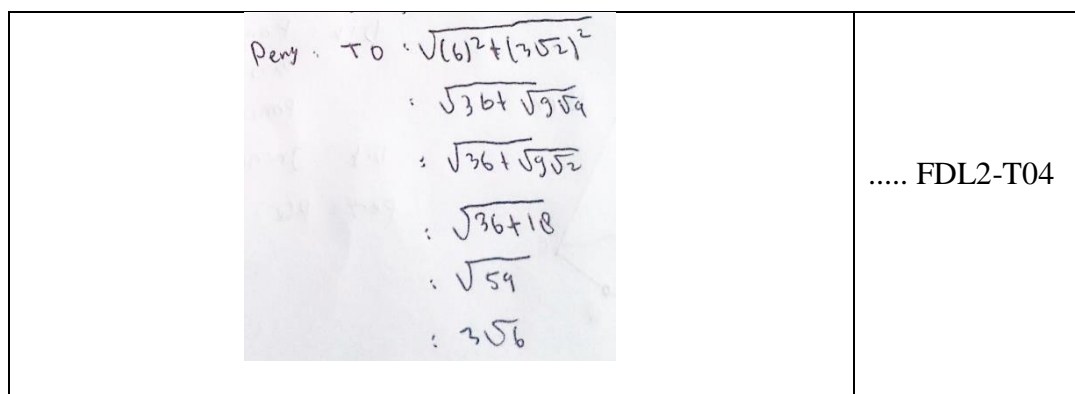 Peny : TO : √(6)²+(3√2)²
: √36+√9√4
: √36+√9√2
: √36+18
: √54
: 3√6
..... FDL2-T04